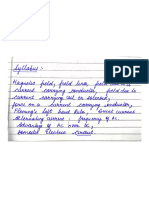 Syllabus :
Magnetic field, field lines, field due to
current carrying conductor, field due to
current carrying coil or solenoid,
force on a current carrying conductor,
Fleming's Left hand Rule, Direct current
Alternating current : frequency of AC.
Advantage of AC over DC.
Domestic Electric circuit.